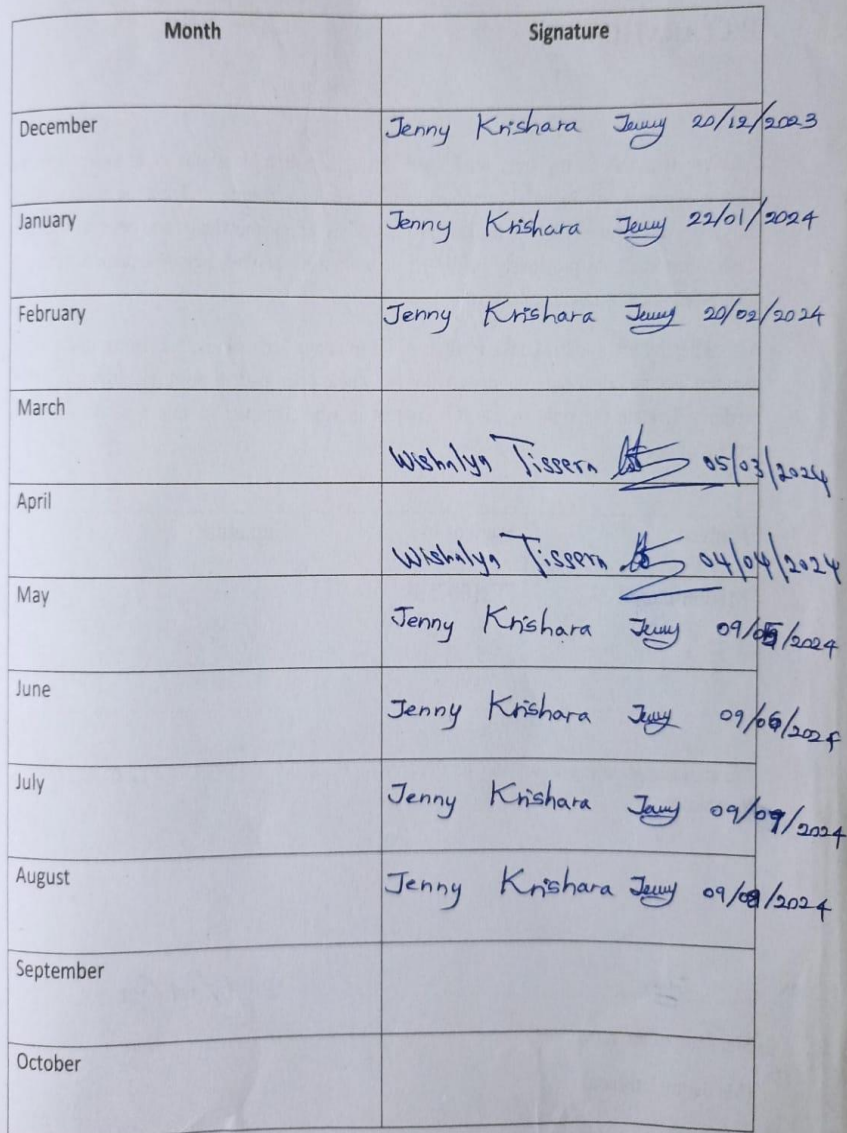 Month Signature
December Jenny Krishara Jenny 20/12/2023
January Jenny Krishara Jenny 22/01/2024
February Jenny Krishara Jenny 20/02/2024
March
Wishalya Tissera 05/03/2024
April
Wishalya Tissera 04/04/2024
May
Jenny Krishara Jenny 09/05/2024
June
Jenny Krishara Jenny 09/06/2024
July
Jenny Krishara Jenny 09/07/2024
August Jenny Krishara Jenny 09/08/2024
September
October